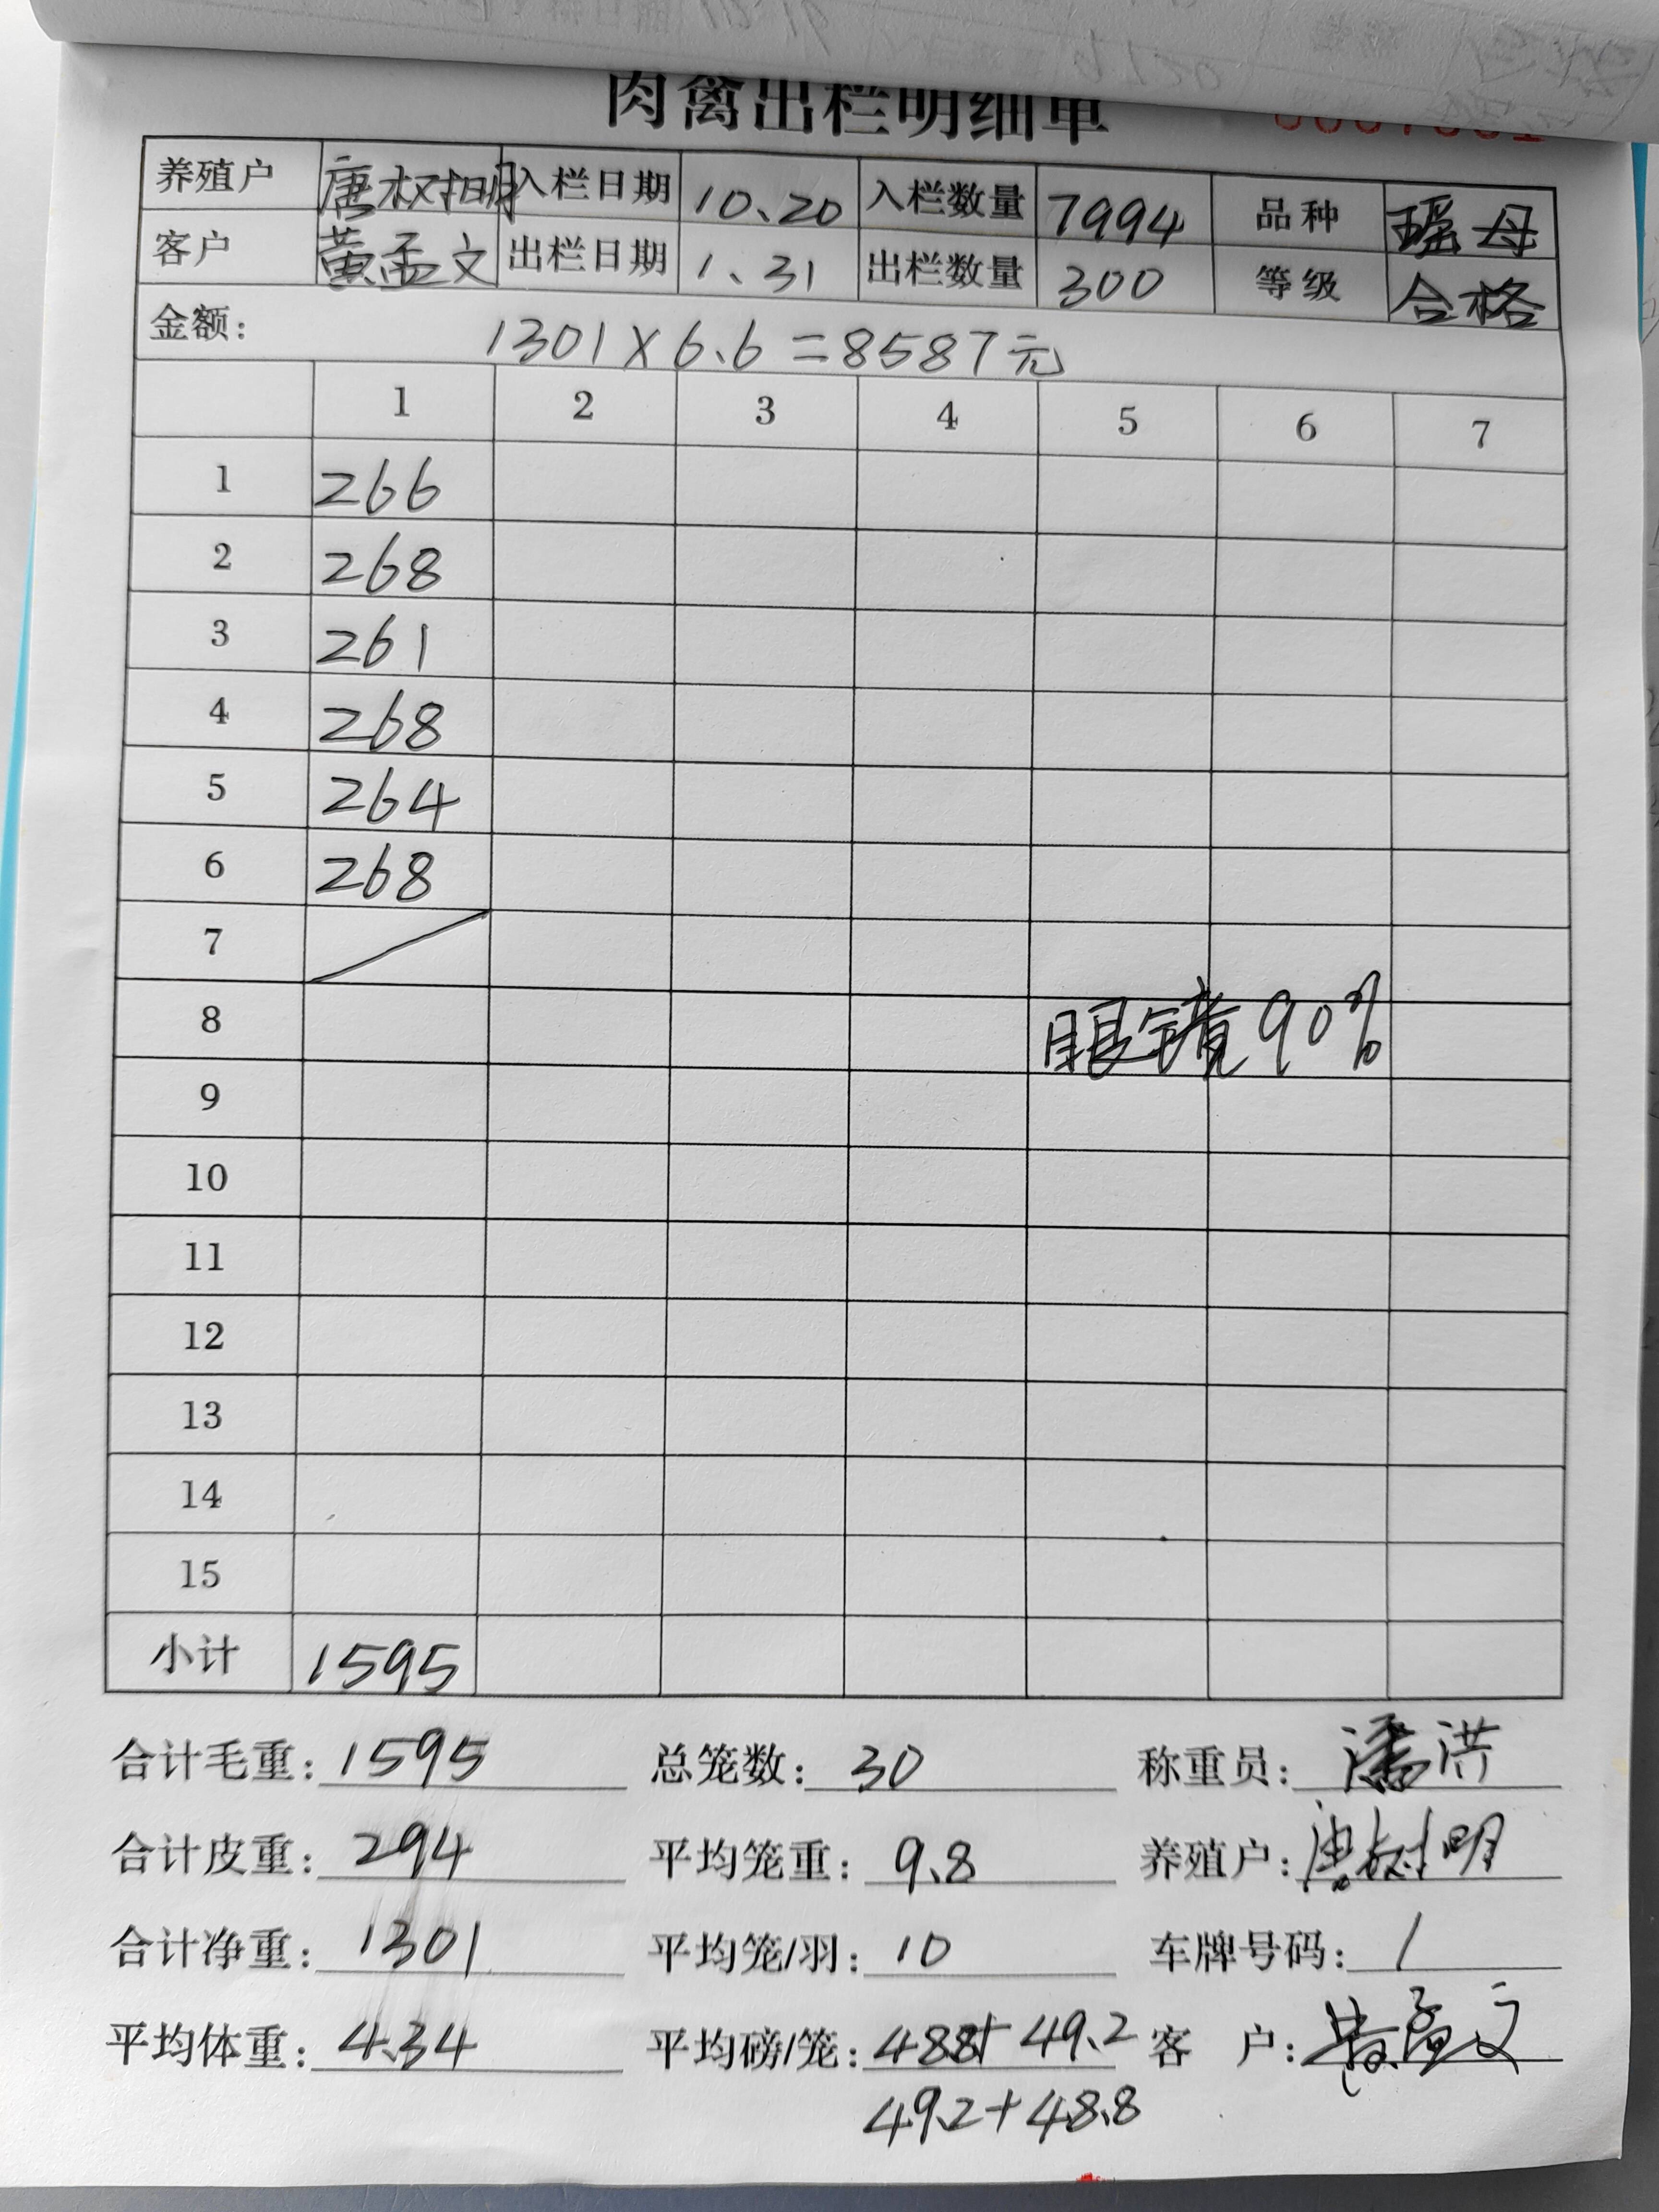 肉禽出栏明细单
养殖户 唐权明 入栏日期 10.20 入栏数量 7994 品种 瑶母
客户 黄孟文 出栏日期 1.31 出栏数量 300 等级 合格
金额: 1301×6.6=8587元
1 2 3 4 5 6 7
1 266
2 268
3 261
4 268
5 264
6 268
7
8 眼镜90%
9
10
11
12
13
14
15
小计 1595
合计毛重: 1595 总笼数: 30 称重员: 潘洪
合计皮重: 294 平均笼重: 9.8 养殖户: 唐树明
合计净重: 1301 平均笼/羽: 10 车牌号码: /
平均体重: 4.34 平均磅/笼: 488+49.2 客户: 黄孟文
49.2+48.8